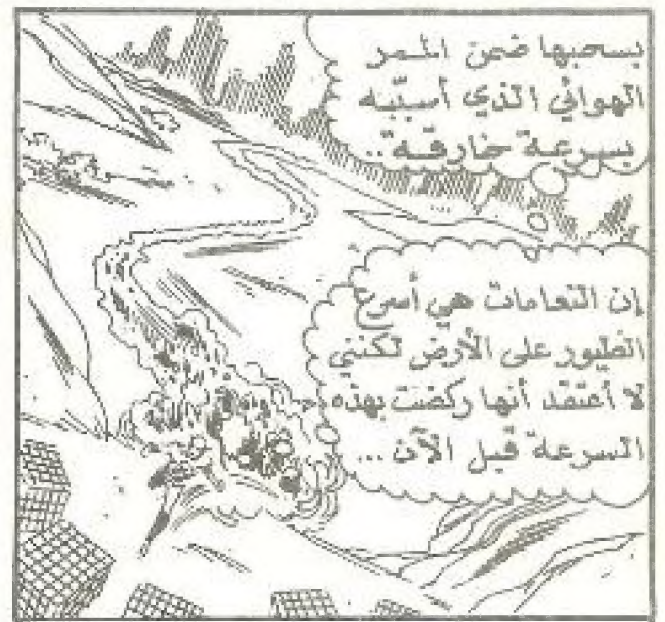 بسحبها ضمن الممر
الهوائي الذي أسبّبه
بسرعة خارقة..
إن النعامات هي أسرع
الطيور على الأرض لكنني
لا أعتقد أنها ركضت بهذه
السرعة قبل الآن ...